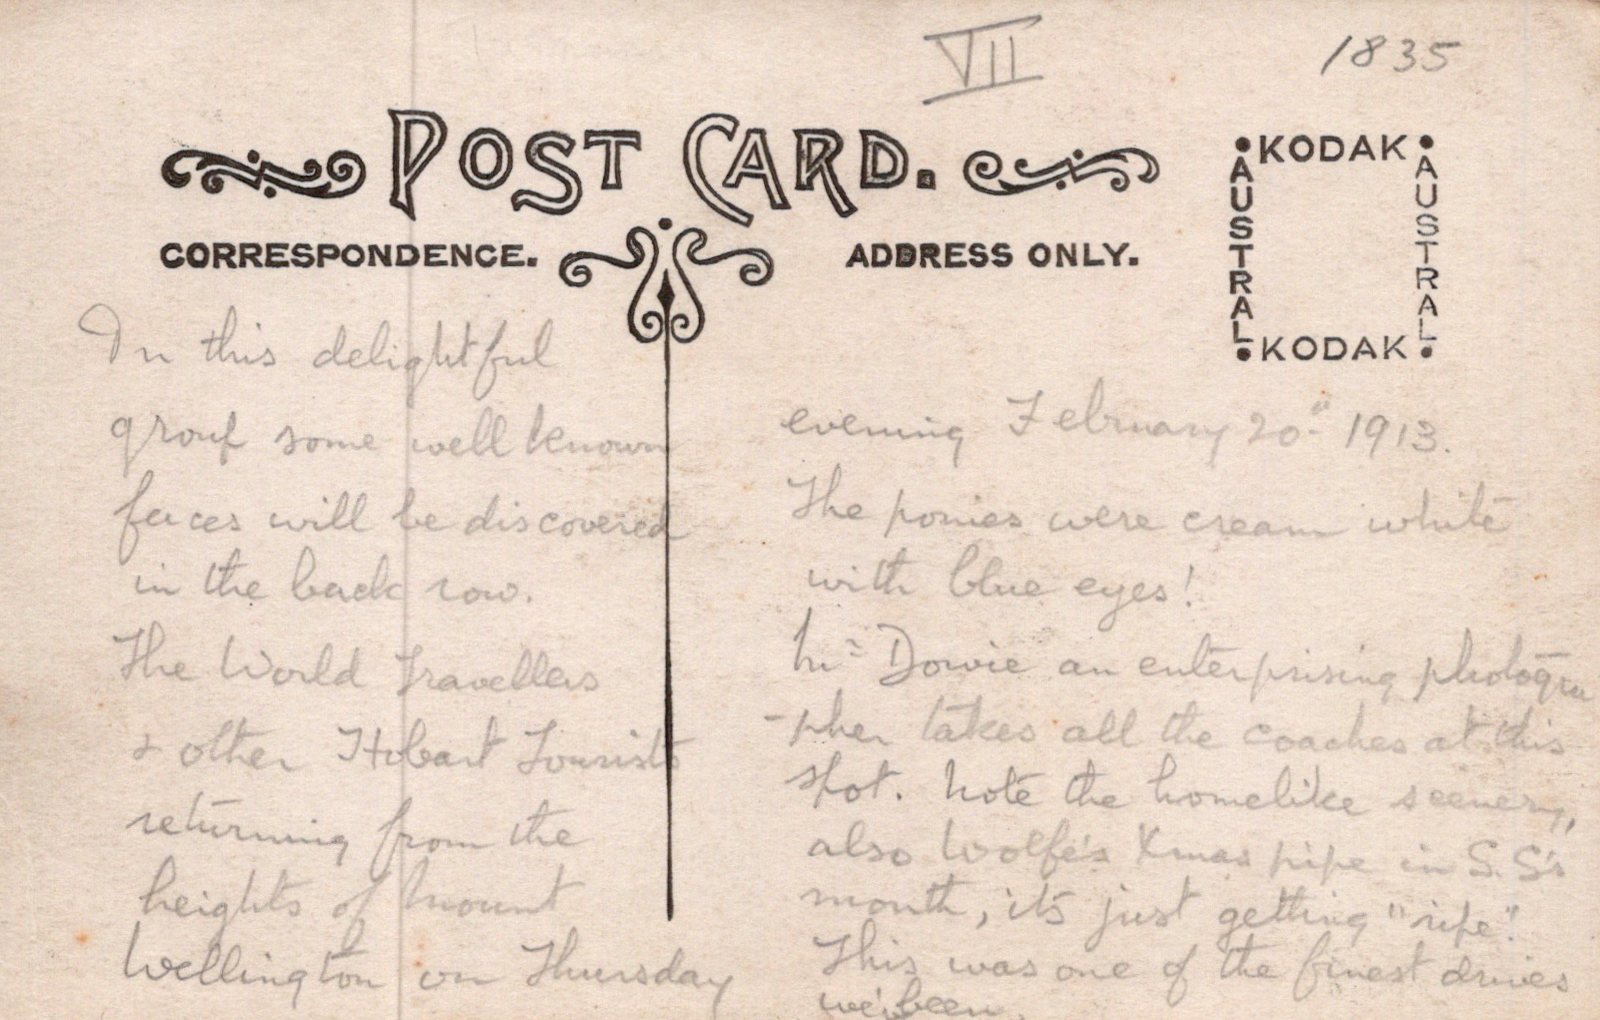 VII
1835
POST CARD.
CORRESPONDENCE.
ADDRESS ONLY.
KODAK
AUSTRAL
AUSTRAL
KODAK
In this delightful
group some well known
faces will be discovered
in the back row.
The World Travellers
& other Hobart Tourists
returning from the
heights of Mount
Wellington on Thursday
evening February 20" 1913.
The ponies were cream white
with blue eyes!
Mr Dowie an enterprising photogra
-pher takes all the coaches at this
spot. Note the homelike scenery,
also Wolfe's Xmas pipe in S.S's
mouth, it's just getting "ripe".
This was one of the finest drives
we'been.